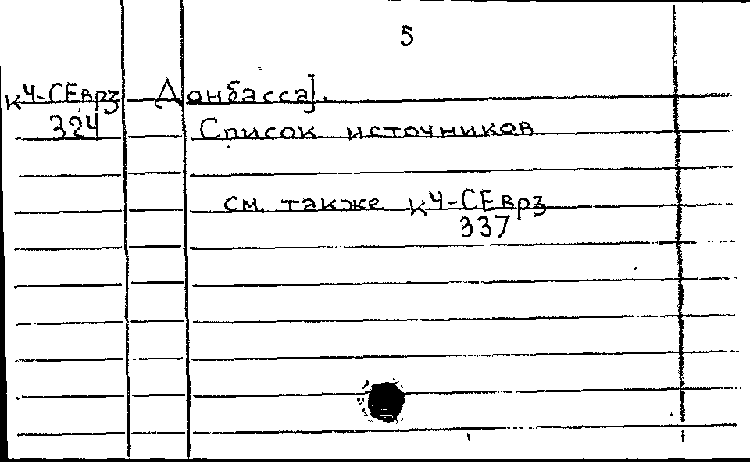 5
кЧ-СЕврз Донбасса].
324 Список источников
см. также кЧ-СЕврз
337